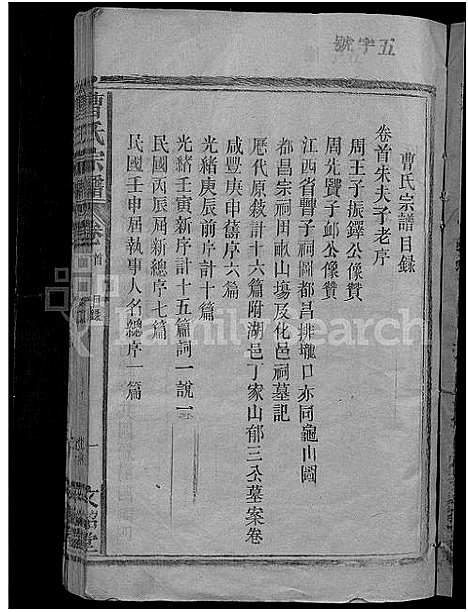 五字號
曹氏宗譜目錄
卷首朱夫子老序
周王子振鐸公像贊
周先賢子䘏公像贊
江西省曹子祠圖都昌排壠口亦同龜山圖
都昌宗祠田畝山塲及化邑祠墓記
歷代原敘計十六篇附湖邑丁家山郁三公墓案卷
咸豐庚申舊序六篇
光緒庚辰前序計十篇
光緒壬寅新序計十五篇詞一說一
民國丙辰屆新總序七篇
民國壬申屆執事人名總序一篇
曹氏宗譜
卷首
目錄
一
FamilySearch